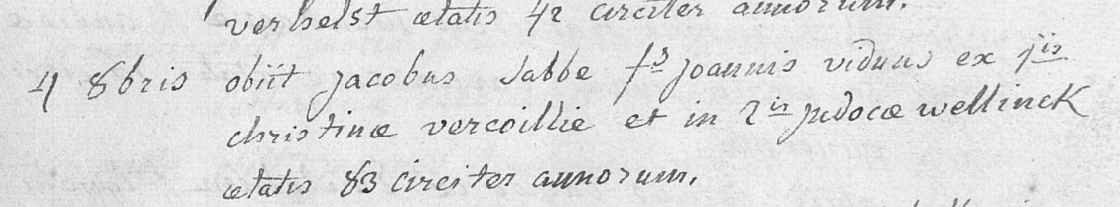 verhelst ætatis 42 circiter annorum.
4 8bris obiit jacobus Sabbe fs joannis viduus ex 1is
christinæ vercoillie et in 2is judocæ wellinck
ætatis 83 circiter annorum.